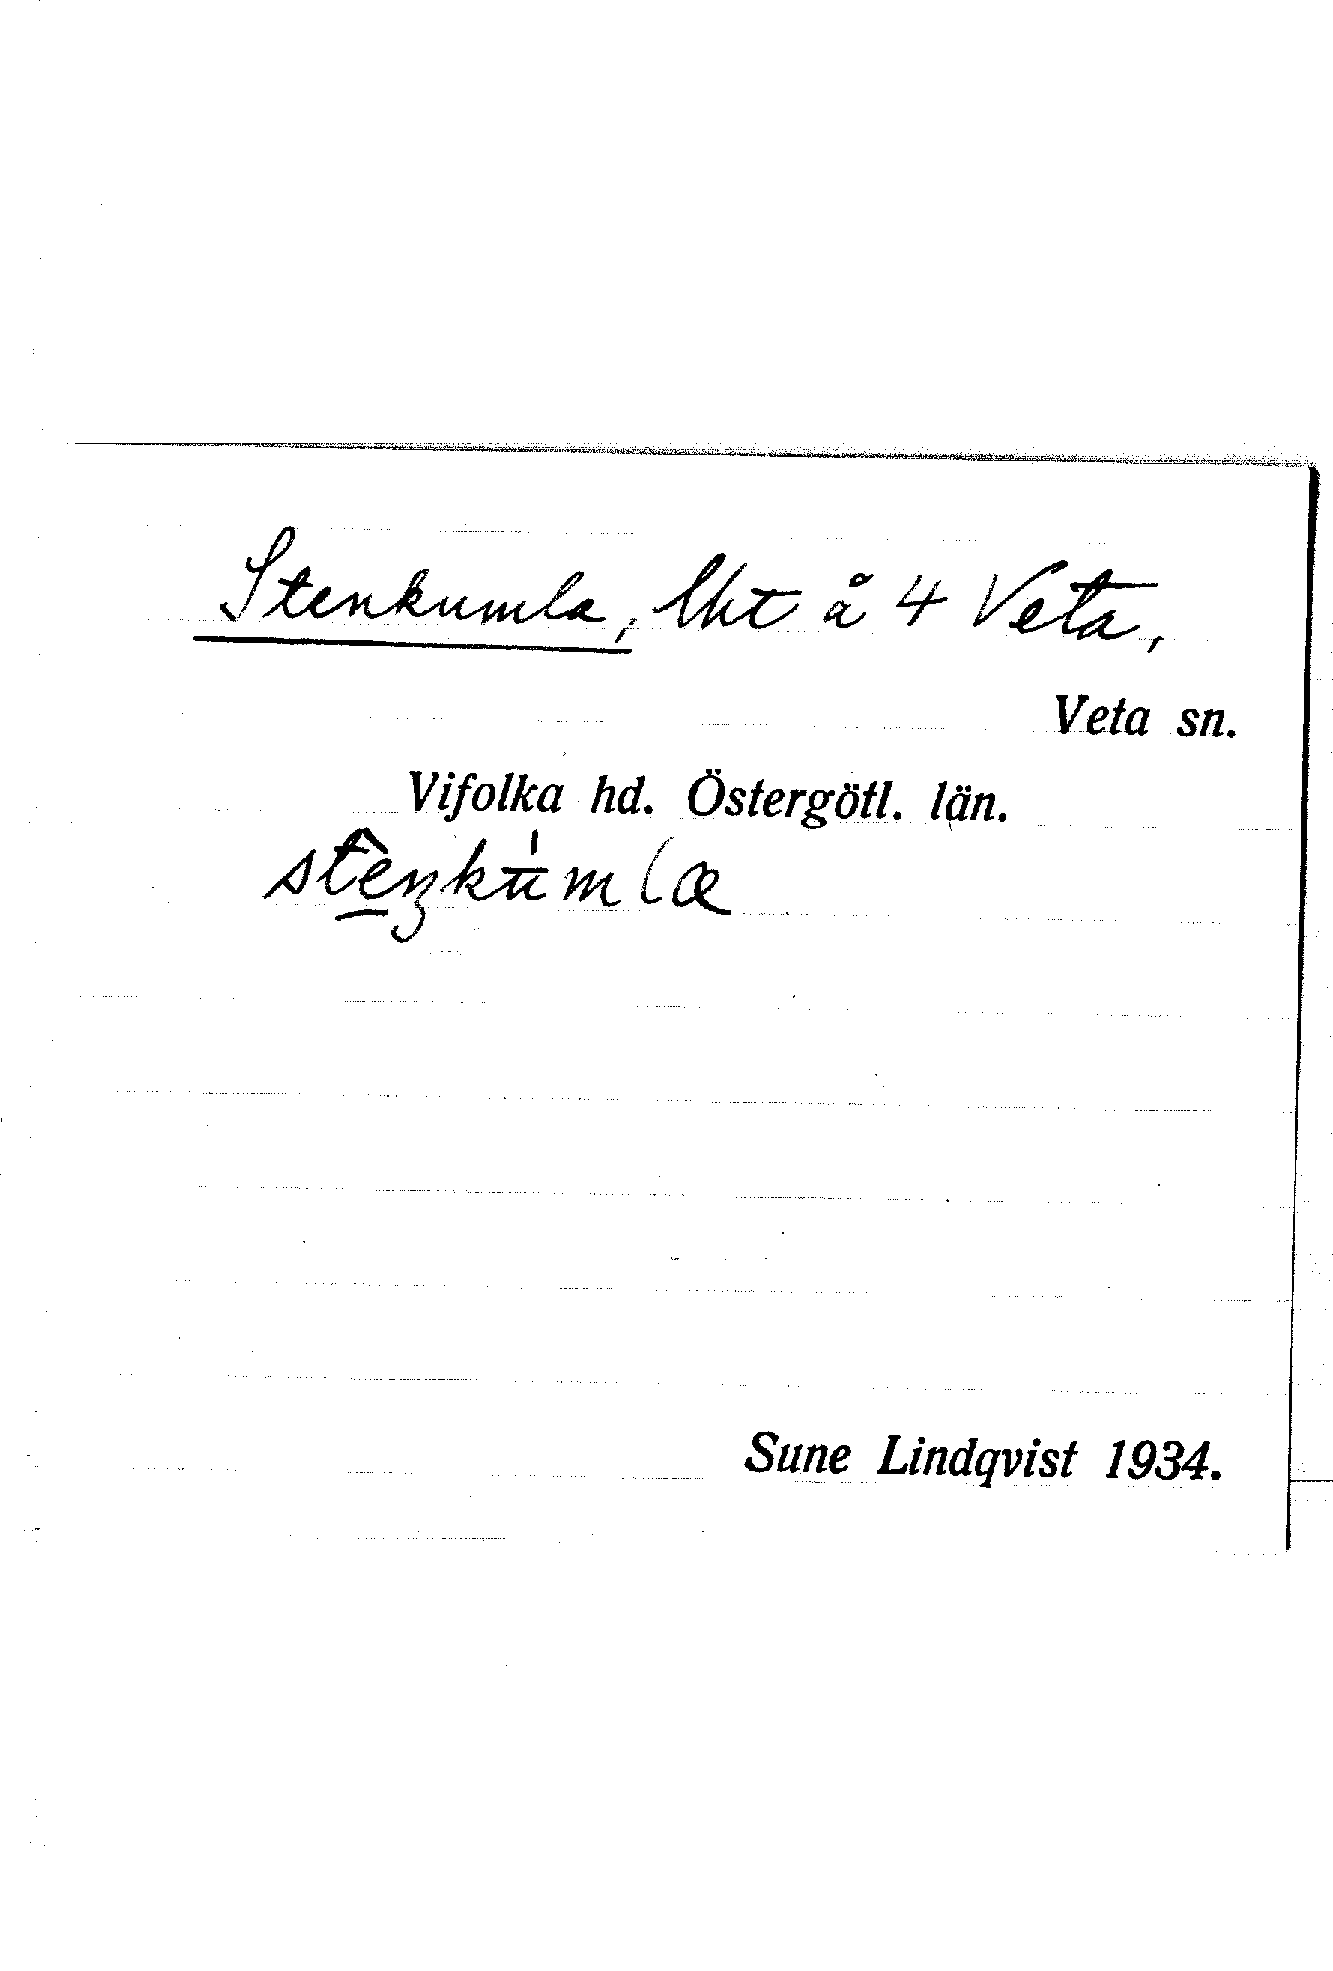 Stenkumla, lht å 4 Veta,
Veta sn.
Vifolka hd. Östergötl. län.
Sune Lindqvist 1934.